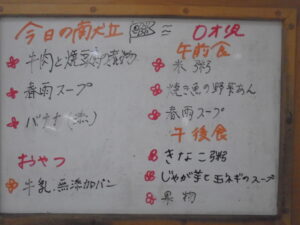 今日の献立
牛肉と焼豆腐の煮物
春雨スープ
バナナ
おやつ
牛乳、無添加パン
0才児
午前食
米粥
焼き魚の野菜あん
春雨スープ
午後食
きなこ粥
じゃが芋と玉ネギのスープ
果物